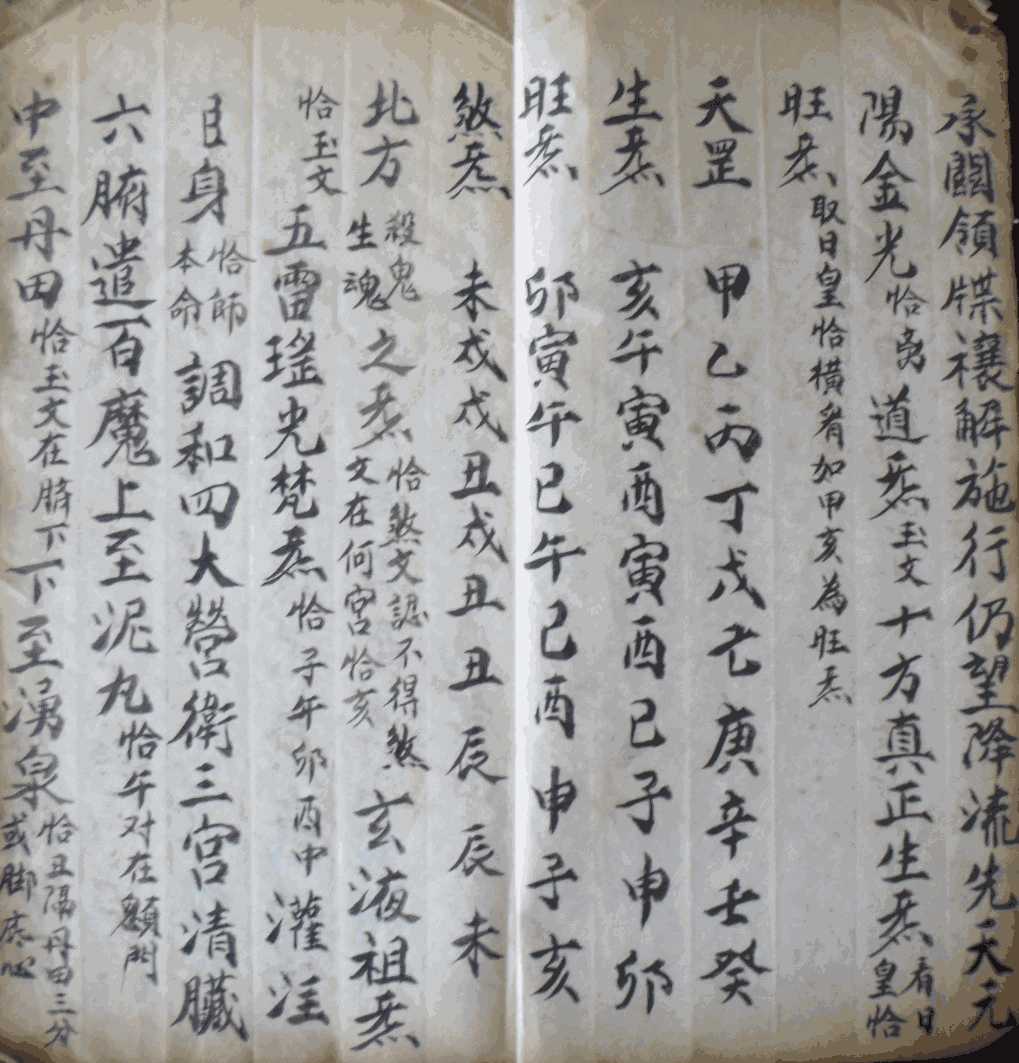 承闕領牒禳解施行仍望降流先天元
陽金光恰亥道炁玉文十方真正生炁看日皇恰
旺炁取日皇恰橫看如甲亥為旺炁
天罡 甲乙丙丁戊己庚辛壬癸
生炁 亥午寅酉寅酉巳子申卯
旺炁 卯寅午巳午巳酉申子亥
煞炁 未戌戌丑戌丑丑辰辰未
北方殺鬼生魂之炁恰煞文認不得煞文在何宮恰亥玄液祖炁
恰玉文五雷瑤光梵炁恰子午卯酉中灌注
身恰師本命調和四大營衛三宮清臟
六腑遣百魔上至泥丸恰午对在額門
中至丹田恰玉文在臍下下至湧泉恰丑隔丹田三分或脚底心